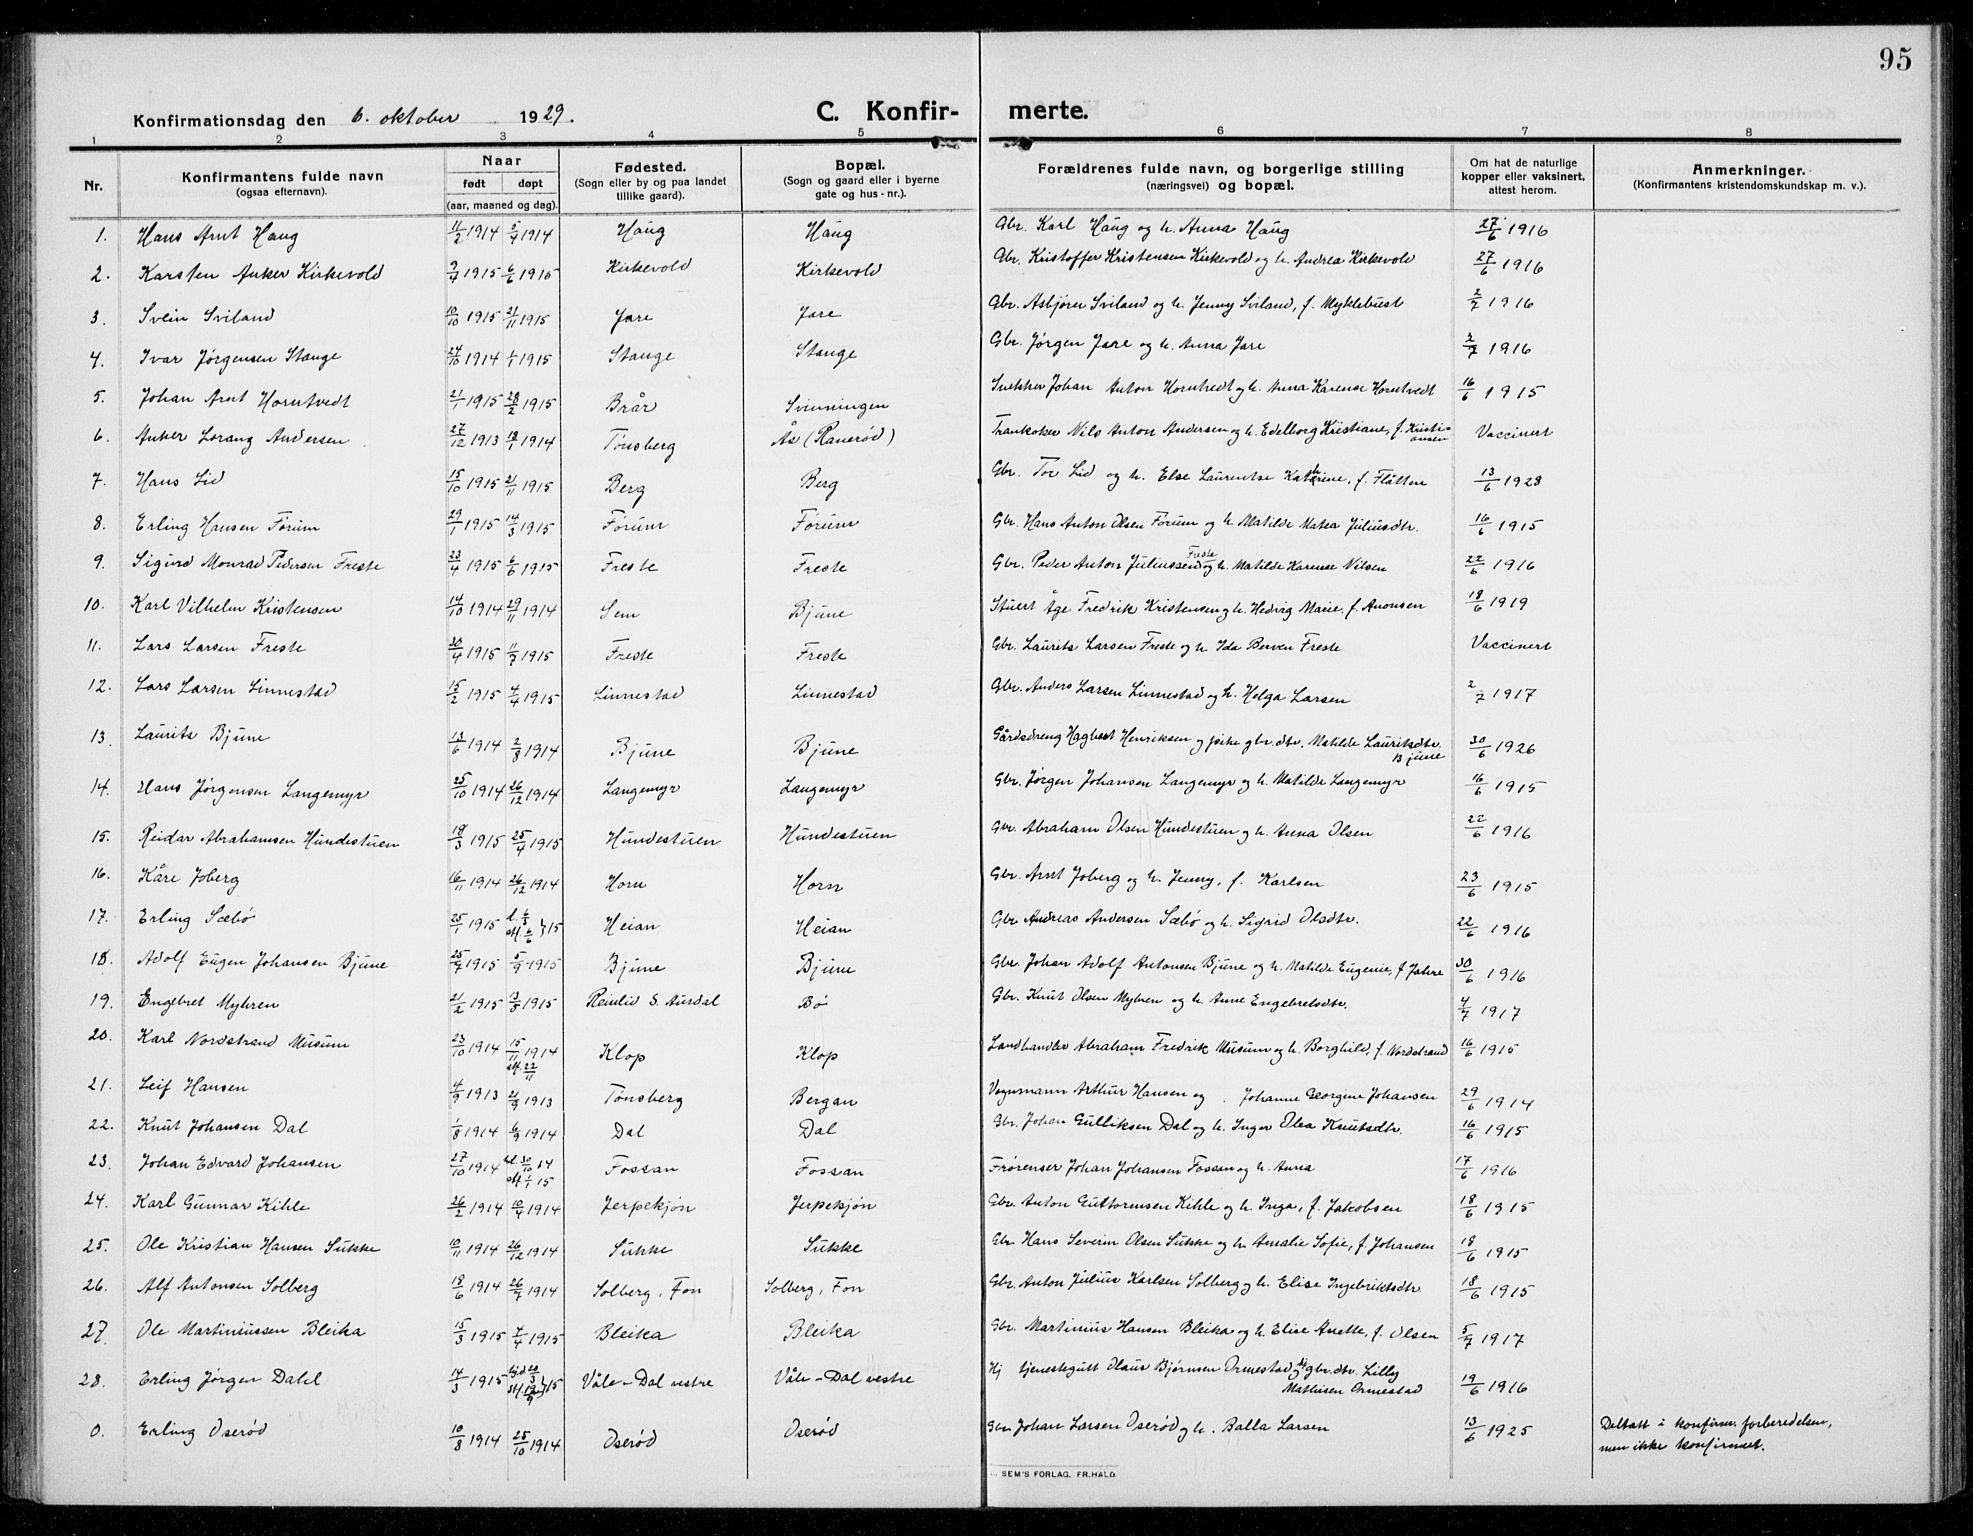 95
Konfirmationsdag den 6. oktober 1929.
C. Konfir- merte.
1 2 3 4 5 6 7 8
Nr.
Konfirmantens fulde navn
(ogsaa efternavn).
Naar
født døpt
(aar, maaned og dag).
Fødested.
(Sogn eller by og paa landet
tillike gaard).
Bopæl.
(Sogn og gaard eller i byerne
gate og hus-nr.).
Forældrenes fulde navn, og borgerlige stilling
(næringsvei) og bopæl.
Om hat de naturlige
kopper eller vaksinert,
attest herom.
Anmerkninger.
(Konfirmantens kristendomskundskap m. v.).
1. Hans Arnt Haug 11/2 1914 5/4 1914 Haug Haug Gbr. Karl Haug og h. Anna Haug 27/6 1916
2. Karsten Anker Kirkevold 9/4 1915 6/6 1915 Kirkevold Kirkevold Gbr. Kristoffer Kristensen Kirkevold og h. Andrea Kirkevold 27/6 1916
3. Svein Sviland 10/10 1915 21/11 1915 Jare Jare Gbr. Asbjørn Sviland og h. Jenny Sviland, f. Myklebust 2/7 1916
4. Ivar Jørgensen Stange 24/10 1914 1/1 1915 Stange Stange Gbr. Jørgen Jare og h. Anna Jare 2/7 1916
5. Johan Arnt Horntvedt 21/1 1915 28/2 1915 Brår Svinningen Snekker Johan Anton Horntvedt og h. Anna Karense Horntvedt 16/6 1915
6. Anker Lorang Andersen 27/12 1913 18/1 1914 Tønsberg Ås (Ranerød) Trankoker Nils Anton Andersen og h. Edelborg Kristiane, f. Kristi-
ansen Vaccinert
7. Hans Lid 15/10 1915 21/11 1915 Berg Berg Gbr. Tor Lid og h. Else Laurentse Kathrine, f. Flåtten 13/6 1928
8. Erling Hansen Førum 29/1 1915 14/3 1915 Førum Førum Gbr. Hans Anton Olsen Førum og h. Matilde Matea Juliusdtr. 16/6 1915
9. Sigurd Monrad Pedersen Freste 23/4 1915 6/6 1915 Freste Freste Gbr. Peder Anton Juliussen Freste og h. Matilde Karense Nilsen 22/6 1916
10. Karl Vilhelm Kristensen 14/10 1914 29/11 1914 Sem Bjune Stuert Åge Fredrik Kristensen og h. Hedvig Marie, f. Anonsen 18/6 1919
11. Lars Larsen Freste 30/4 1915 11/7 1915 Freste Freste Gbr. Laurits Larsen Freste og h. Ida Berven Freste Vaccinert
12. Lars Larsen Linnestad 15/2 1915 4/4 1915 Linnestad Linnestad Gbr. Anders Larsen Linnestad og h. Helga Larsen 2/7 1917
13. Laurits Bjune 13/6 1914 2/8 1914 Bjune Bjune Gårdsdreng Hagbart Henriksen og pike gbr.dtr. Matilde Lauritsdtr.
Bjune 30/6 1926
14. Hans Jørgensen Langemyr 25/10 1914 26/12 1914 Langemyr Langemyr Gbr. Jørgen Johansen Langemyr og h. Matilde Langemyr 16/6 1915
15. Reidar Abrahamsen Hundestuen 18/3 1915 25/4 1915 Hundestuen Hundestuen Gbr. Abraham Olsen Hundestuen og h. Anna Olsen 22/6 1916
16. Kåre Joberg 16/11 1914 26/12 1914 Horn Horn Gbr. Arnt Joberg og h. Jenny, f. Karlsen 23/6 1915
17. Erling Sæbø 25/1 1915 Heian Heian Gbr Andreas Andersen Sæbø og h. Sigrid Olsdtr. 22/6 1916
18. Adolf Eugen Johansen Bjune 25/7 1915 5/9 1915 Bjune Bjune Gbr. Johan Adolf Antonsen Bjune og h. Matilde Eugenie, f. Jahre 30/6 1916
19. Engebret Myhren 21/2 1915 13/5 1915 Reinlid S. Aurdal Bø Gbr. Knut Olsen Myhren og h. Anne Engebretsdtr. 4/7 1917
20. Karl Nordstrand Musum 23/10 1914 15/11 1914
stf. 22/11 Klop Klop Landhandler Abraham Fredrik Musum og h. Borghild, f. Nordstrand 16/6 1915
21. Leif Hansen 4/9 1913 21/9 1913 Tønsberg Bergan Vognmann Arthur Hansen og Johanne Georgine Johansen 29/6 1914
22. Knut Johansen Dal 1/8 1914 6/9 1914 Dal Dal Gbr. Johan Gulliksen Dal og h. Inger Olea Knutsdtr. 16/6 1915
23. Johan Edvard Johansen 27/10 1914 30/10 14
stf. 1/1 15 Fossan Fossan Frørenser Johan Johansen Fossan og h. Anna 17/6 1916
24. Karl Gunnar Kihle 26/2 1914 10/4 1914 Jerpekjøn Jerpekjøn Gbr. Anton Guttormsen Kihle og h. Inga, f. Jakobsen 18/6 1915
25. Ole Kristian Hansen Sukke 10/11 1914 26/12 1914 Sukke Sukke Gbr Hans Severin Olsen Sukke og h. Amalie Sofie, f. Johansen 18/6 1915
26. Alf Antonsen Solberg 18/6 1914 26/7 1914 Solberg, Fon Solberg, Fon Gbr. Anton Julius Karlsen Solberg og h. Elise Ingebriktsdtr. 18/6 1915
27 Ole Martiniussen Bleika 15/3 1915 4/4 1915 Bleika Bleika Gbr. Martinius Hansen Bleika og h. Elise Anette, f. Olsen 5/7 1917
28. Erling Jørgen Dahl 14/3 1915 Våle - Dal vestre Våle - Dal vestre Hj tjenestegutt Olaus Bjørnsen Ormestad og gbr.dtr. Lilly
Mathisen Ormestad 19/6 1916
0. Erling Oserød 10/8 1914 25/10 1914 Oserød Oserød Gbr Johan Larsen Oserød og h. Balla Larsen 13/6 1925 Deltatt i konfirm. forberedelsen,
men ikke konfirmert.
SEM'S FORLAG. FR. HALD.